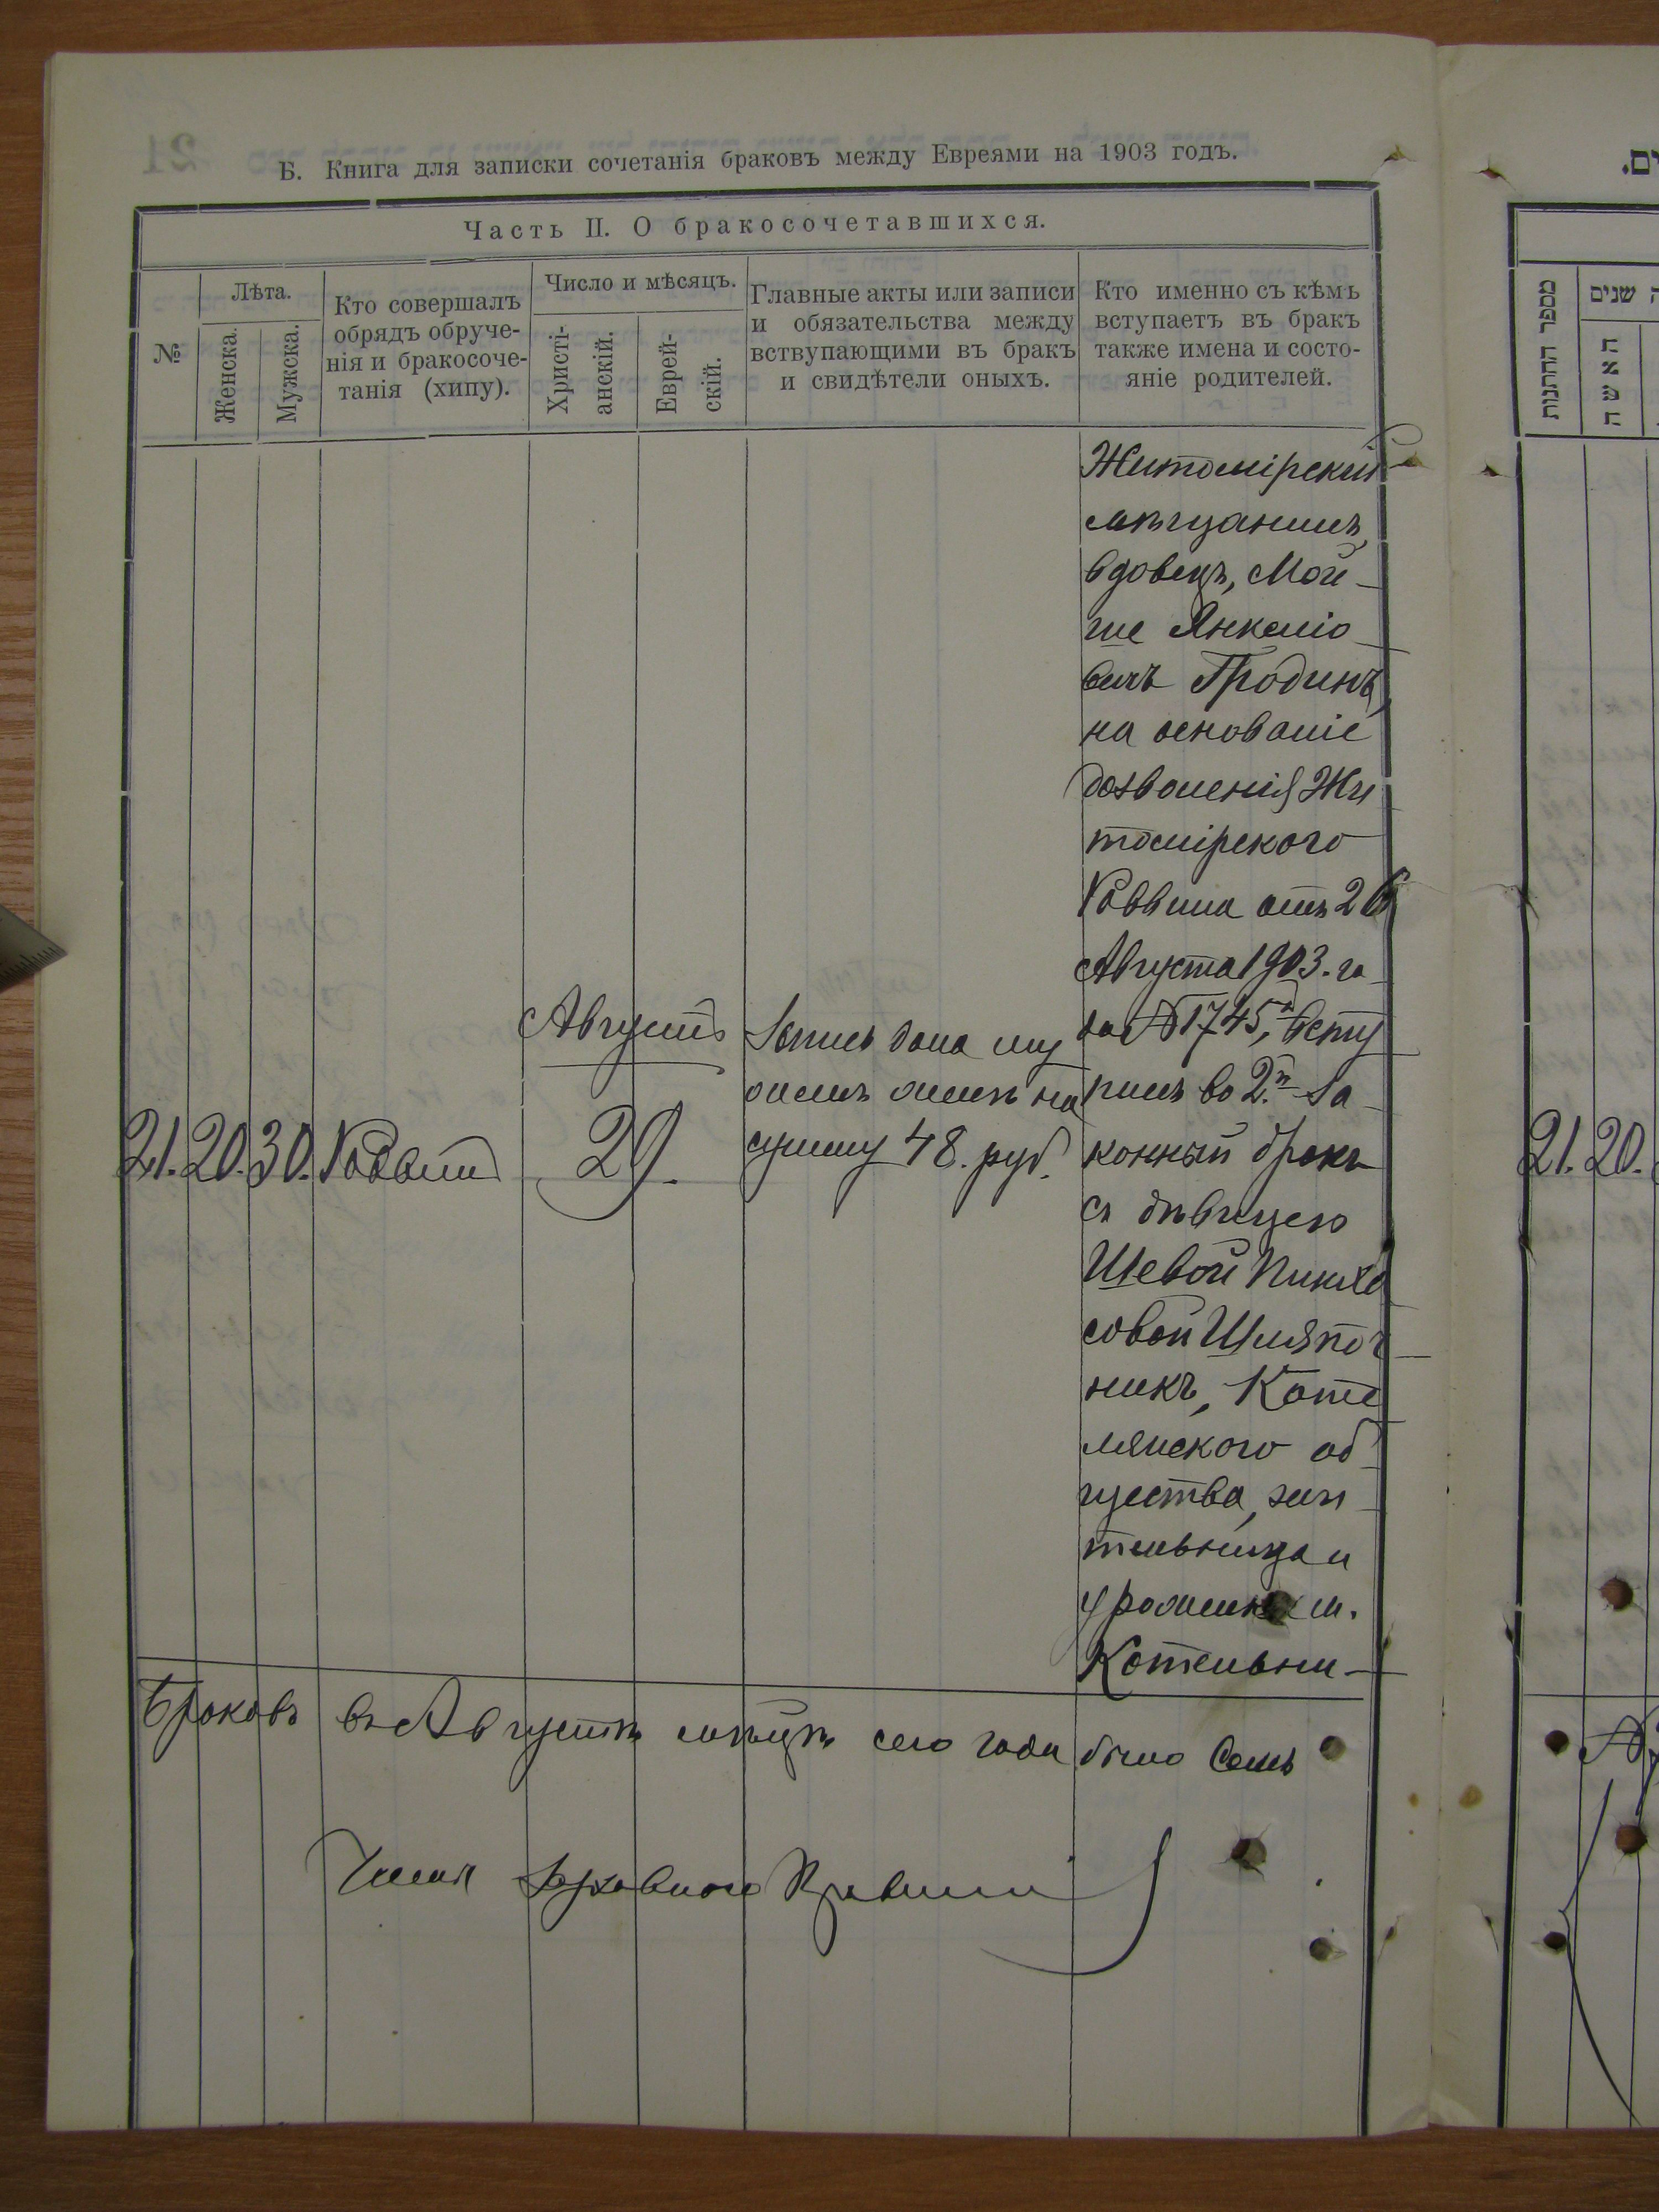 Б. Книга для записки сочетанія браковъ между Евреями на 1903 годъ.
Часть II. О бракосочетавшихся.
№
Лѣта.
Женска.
Мужска.
Кто совершалъ
обрядъ обруче-
нія и бракосоче-
танія (хипу).
Число и мѣсяцъ.
Христі-
анскій.
Еврей-
скій.
Главные акты или записи
и обязательства между
вствупающими въ бракъ
и свидѣтели оныхъ.
Кто именно съ кѣмъ
вступаетъ въ бракъ
также имена и состо-
яніе родителей.
21. 20. 30. Раввин
Августъ
29.
Запись дана му
жемъ женѣ на
сумму 48. руб.
Житомірскій
мѣщанинъ,
вдовецъ, Мой-
ше Янкеліо-
вичъ Гродинъ,
на основаніе
дозволенія Жи
томірского
Раввина отъ 26
Августа 1903. го
да № 1745, всту
пилъ во 2.й за-
конный бракъ
съ дѣвицею
Шевой Пинхо
совой Шляпоч-
никъ, Коте
лянского об-
щества, жи-
тельница и
урожен. м.
Котельни-
Браковъ въ Августѣ мѣцѣ сего года было Семь
מספר החתנות
שנים
האשה
21. 20.